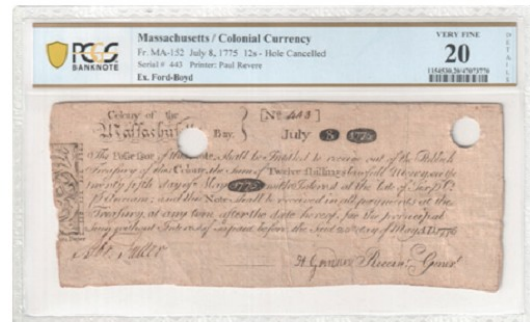 PCGS
BANKNOTE
Massachusetts / Colonial Currency
Fr. MA-152 July 8, 1775 12s - Hole Cancelled
Serial # 443 Printer: Paul Revere
Ex. Ford-Boyd
VERY FINE
20
DETAILS
Colony of the
Bay.
[No 443]
July 8 1775
The Possessor of this Note shall be Intitled to receive out of the Publick
Treasury of this Colony, the Sum of Twelve shillings Lawful Money on the
twenty fifth day of May 1776 with Interest at the Rate of
and this Note shall be received in all payments at the
Treasury, at any time after the date hereof, for the principal
Sum without Interest if so paid before the said day of May A.D. 1776
H Gardner Receivr Genral